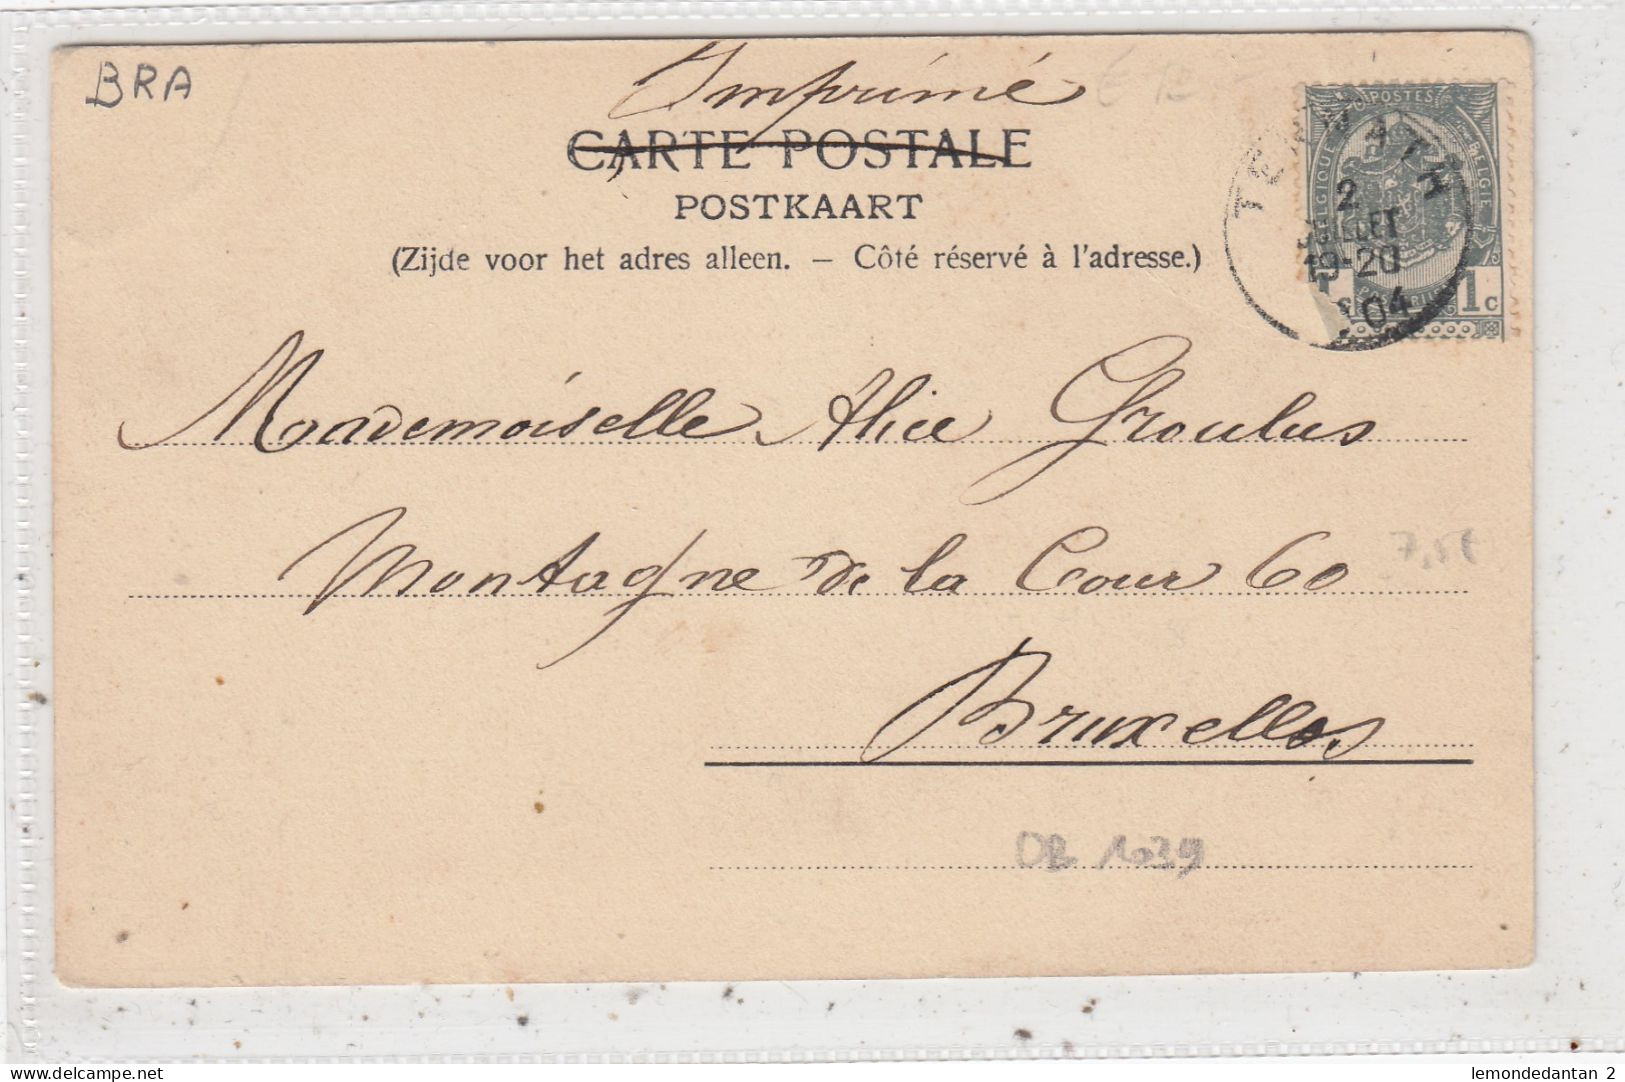 BRA
Imprimé
CARTE POSTALE
POSTKAART
(Zijde voor het adres alleen. – Côté réservé à l'adresse.)
POSTES
BELGIQUE
BELGIE
POSTERIJEN
1c
TERNATH
2
JUILLET
19-20
04
Mademoiselle Alice Groulus
Montagne de la Cour 60
Bruxelles
DB 1039
delcampe.net
lemondedantan_2